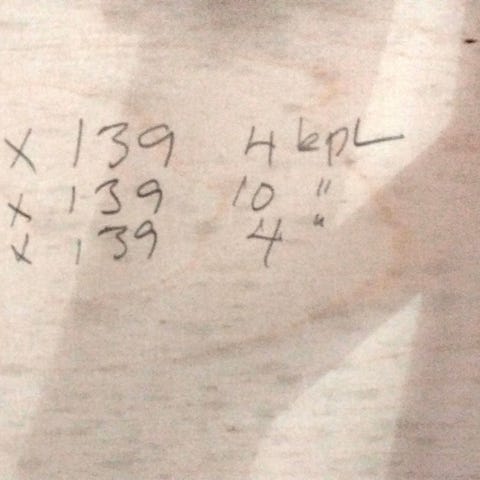 x 139 4 kpl
x 139 10 "
x 139 4 "